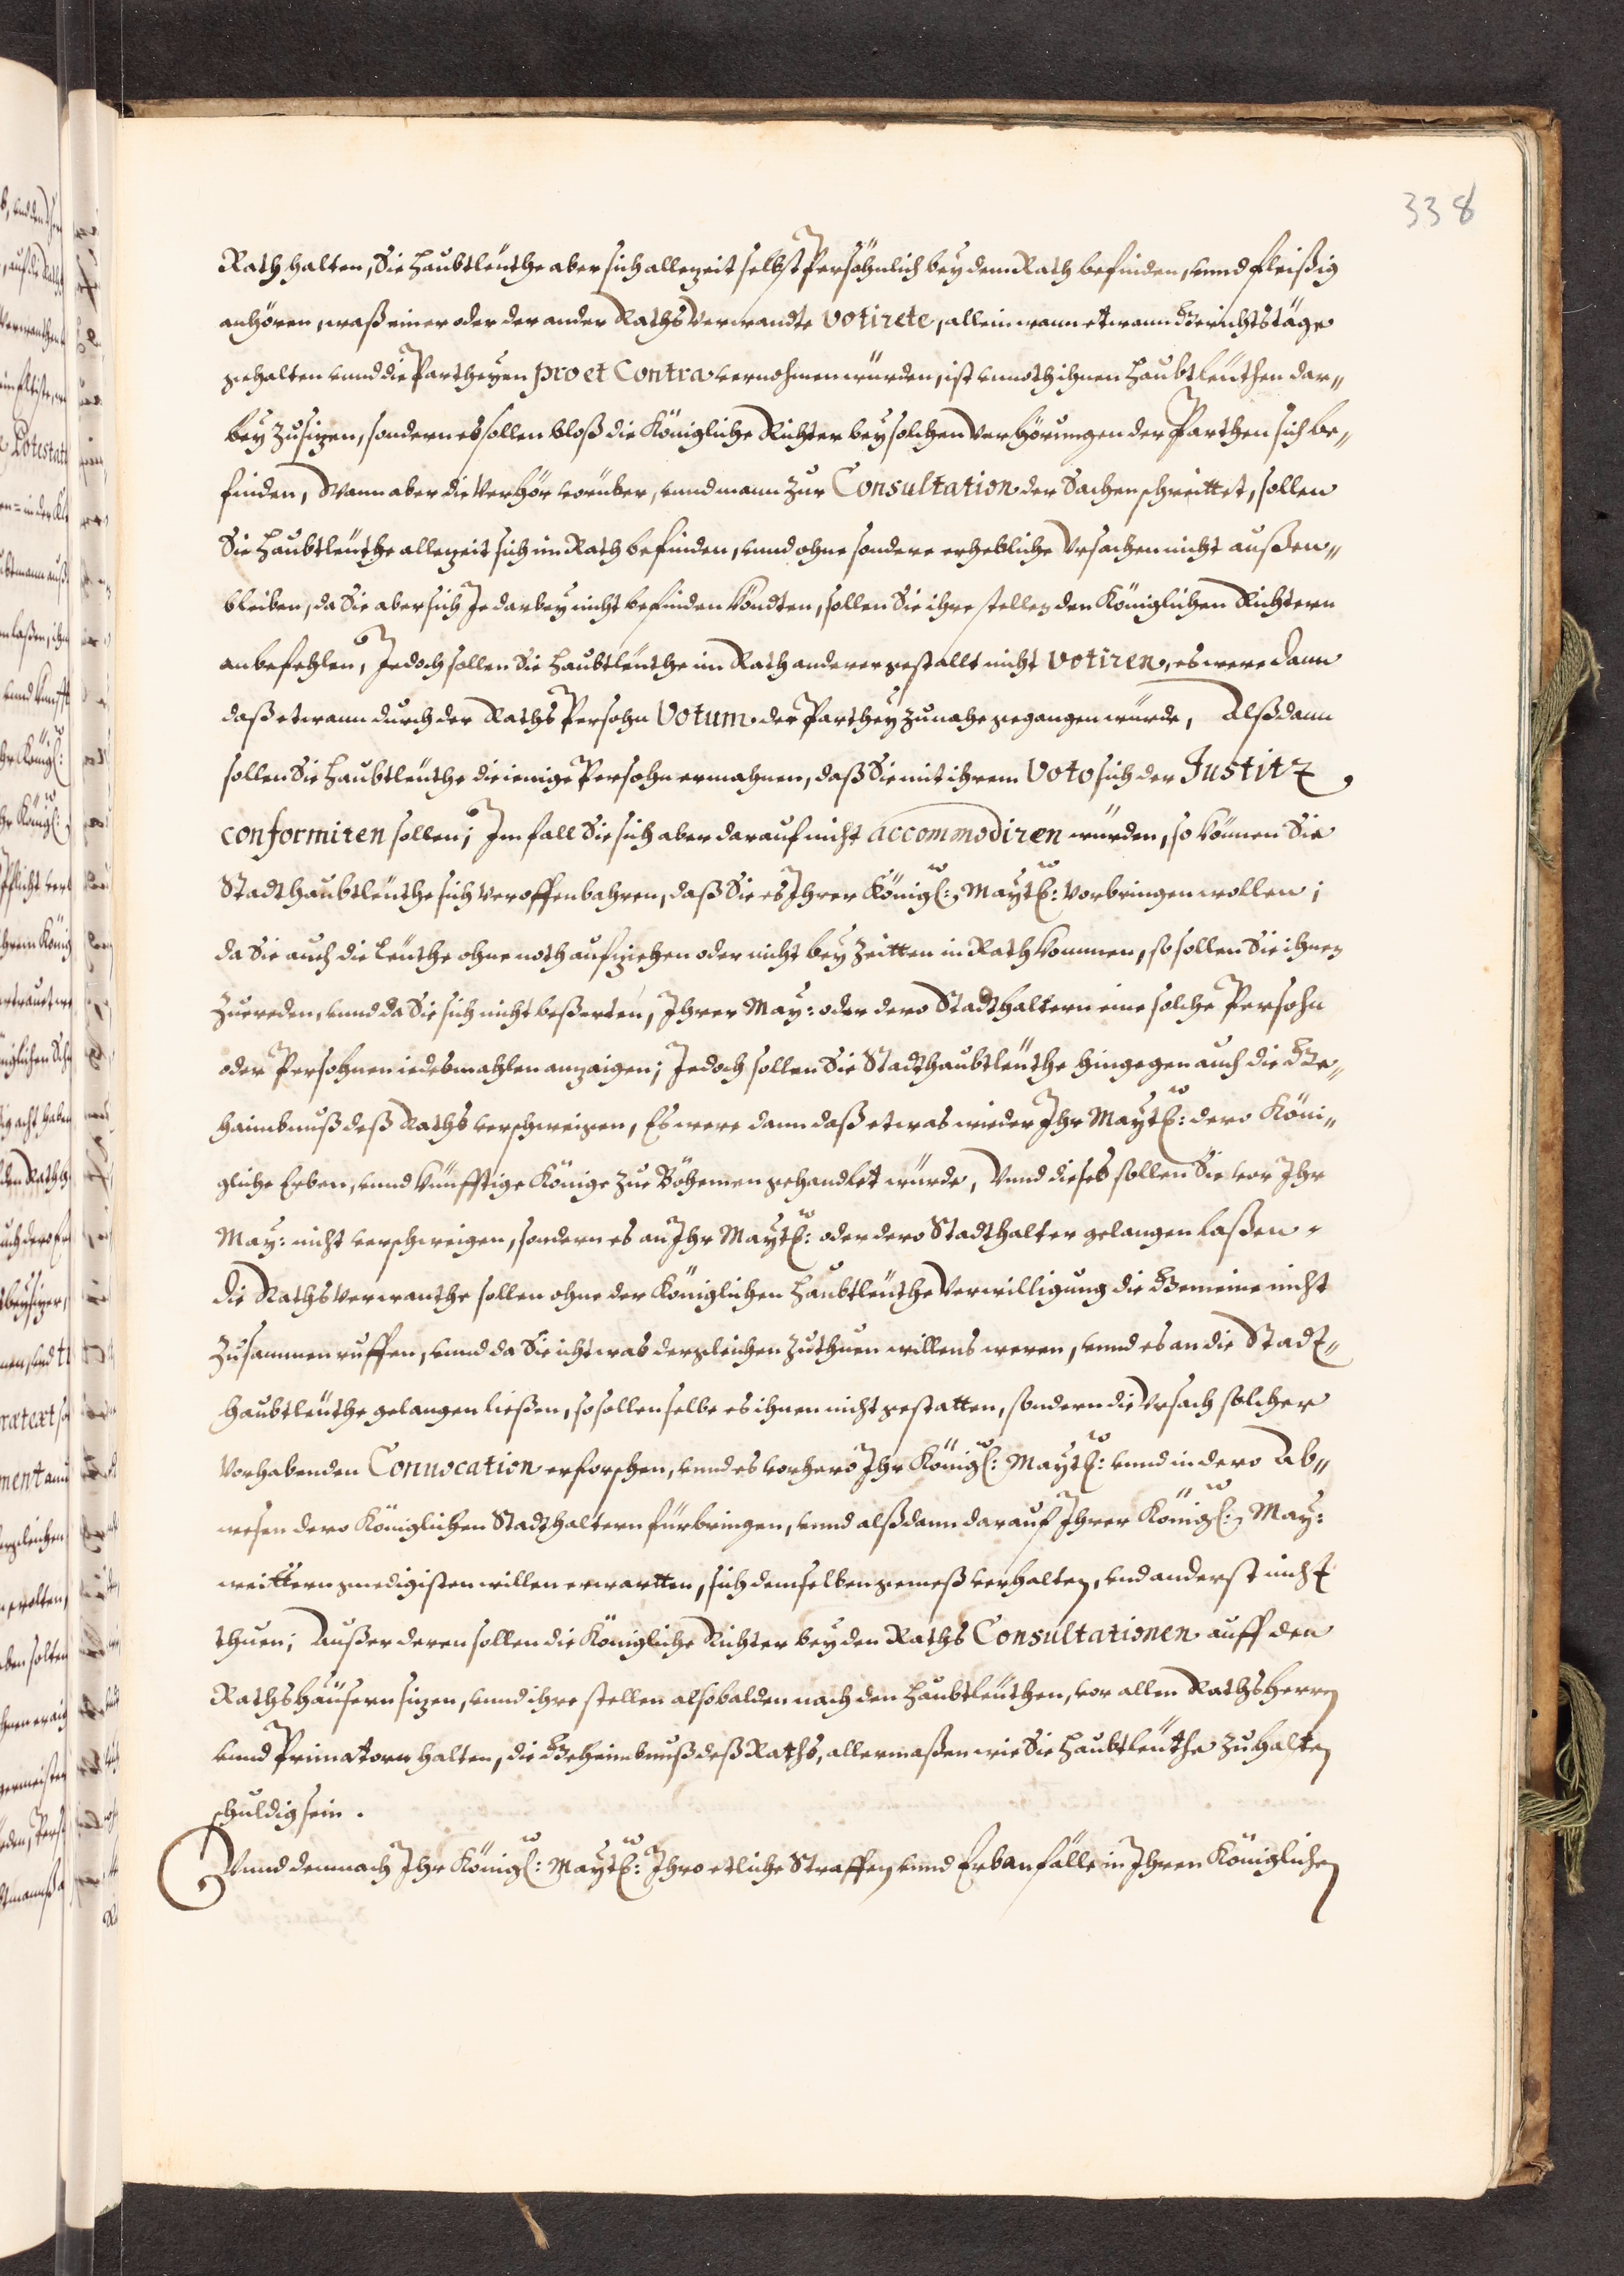 338
Rath halten, Sie Haubtleuthe aber sich allezeit selbst Persöhnlich bey dem Rath befinden, vnnd fleißig
anhören, waß einer oder der ander Raths Verwandte votirete, allein wann etwann Gerichtstäge
gehalten vnnd die Partheyen pro et Contra vernohmen würden, ist vnnoth ihnen Haubtleuthen dar„
bey zusizen, sondern es sollen bloß die Königliche Richter bey solchen Verhörungen der Parthen sich be„
finden, Wann aber die Verhör vorüber, vnnd mann zur Consultation der Sachen schreittet, sollen
Sie Haubtleuthe allezeit sich im Rath befinden, vnnd ohne sondere erhebliche Vrsachen nicht außen„
bleiben, da Sie aber sich Je darbey nicht befinden köndten, sollen Sie ihre stellen den Königlichen Richtern
anbefehlen, Jedoch sollen Sie Haubtleuthe im Rath anderer gestallt nicht votiren, es were dann
daß etwann durch der Raths Persohn Votum der Parthey zu nahe gegangen würde, Alßdann
sollen Sie Haubtleuthe dieienige Persohn ermahnen, daß Sie mit ihrem Voto sich der Justitz
conformiren sollen; Im fall Sie sich aber darauf nicht accommodiren würden, so können Sie
Stadthaubtleuthe sich veroffenbahren, daß Sie es Ihrer Königl: Maytt: vorbringen wollen;
da Sie auch die Leuthe ohne noth aufziehen oder nicht bey Zeitten in Rath kommen, so sollen Sie ihnen
zuereden, vnnd da Sie sich nicht beßerten, Ihrer May: oder dero Stadthaltern eine solche Persohn
oder Persohnen iedesmahlen anzaigen; Jedoch sollen Sie Stadthaubtleuthe hingegen auch die Ge„
haimbnuß deß Raths verschweigen, Es were dann daß etwas wieder Ihr Maytt: dero Köni„
gliche Erben, vnnd künfftige Könige zue Böhemen gehandlet würde, Vnnd dieses sollen Sie vor Ihr
May: nicht verschweigen, sondern es an Ihr Maytt: oder dero Stadthalter gelangen laßen.
Die Raths Verwanthe sollen ohne der Königlichen Haubtleuthe Verwilligung die Gemeine nicht
zusammen ruffen, vnnd da Sie ichtwas dergleichen zuthuen willens weren, vnnd es an die Stadt„
haubtleuthe gelangen ließen, so sollen selbe es ihnen nicht gestatten, sondern die Vrsach solcher
vorhabenden Conuocation erforschen, vnnd es vorhero Ihr Königl: Maytt: vnnd in dero Ab„
wesen dero Königlichen Stadthaltern fürbringen, vnnd alßdann darauf Ihrer Königl: May:
weittern gnedigisten willen erwartten, sich demselben gemeß verhalten, vnd anderst nicht
thuen; Außer deren sollen die Königliche Richter bey den Raths Consultationen auff den
Rathshäusern sizen, vnnd ihre stellen alsobalden nach den Haubtleuthen, vor allen Rathsherren
vnnd Primatorn halten, die Geheimbnuß deß Raths, allermaßen wie Sie Haubtleuthe zu halten
schuldig sein.
Vnnd demnach Ihr Königl: Maytt: Ihro etliche Straffen vnnd Erbanfälle in Ihren Königlichen